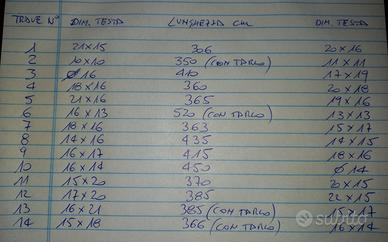 TRAVE N° DIM. TESTA LUNGHEZZA CM DIM. TESTA
1 21x15 306 20x16
2 10x10 350 (CON TARLO) 11x11
3 Ø16 410 17x19
4 18x16 360 20x18
5 21x16 365 19x16
6 16x13 520 (CON TARLO) 13x13
7 18x16 363 15x17
8 14x16 435 14x15
9 16x17 415 18x16
10 16x14 450 Ø14
11 15x20 370 20x15
12 17x20 385 22x15
13 16x21 385 (CON TARLO) 15x17
14 15x18 366 (CON TARLO) 16x14
subito